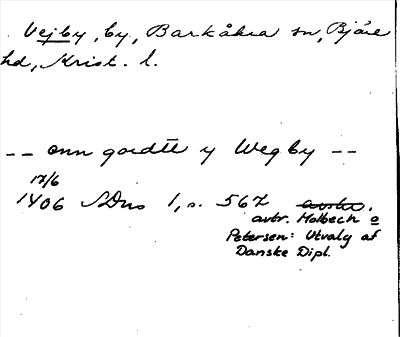 Vejby, by, Barkåkra sn, Bjäre
hd, Krist. l.
-- enn gordtt y Wegby --
17/6
1406 SDns 1, s. 567 avskr.
avtr. Molbech o
Petersen: Utvalg af
Danske Dipl.